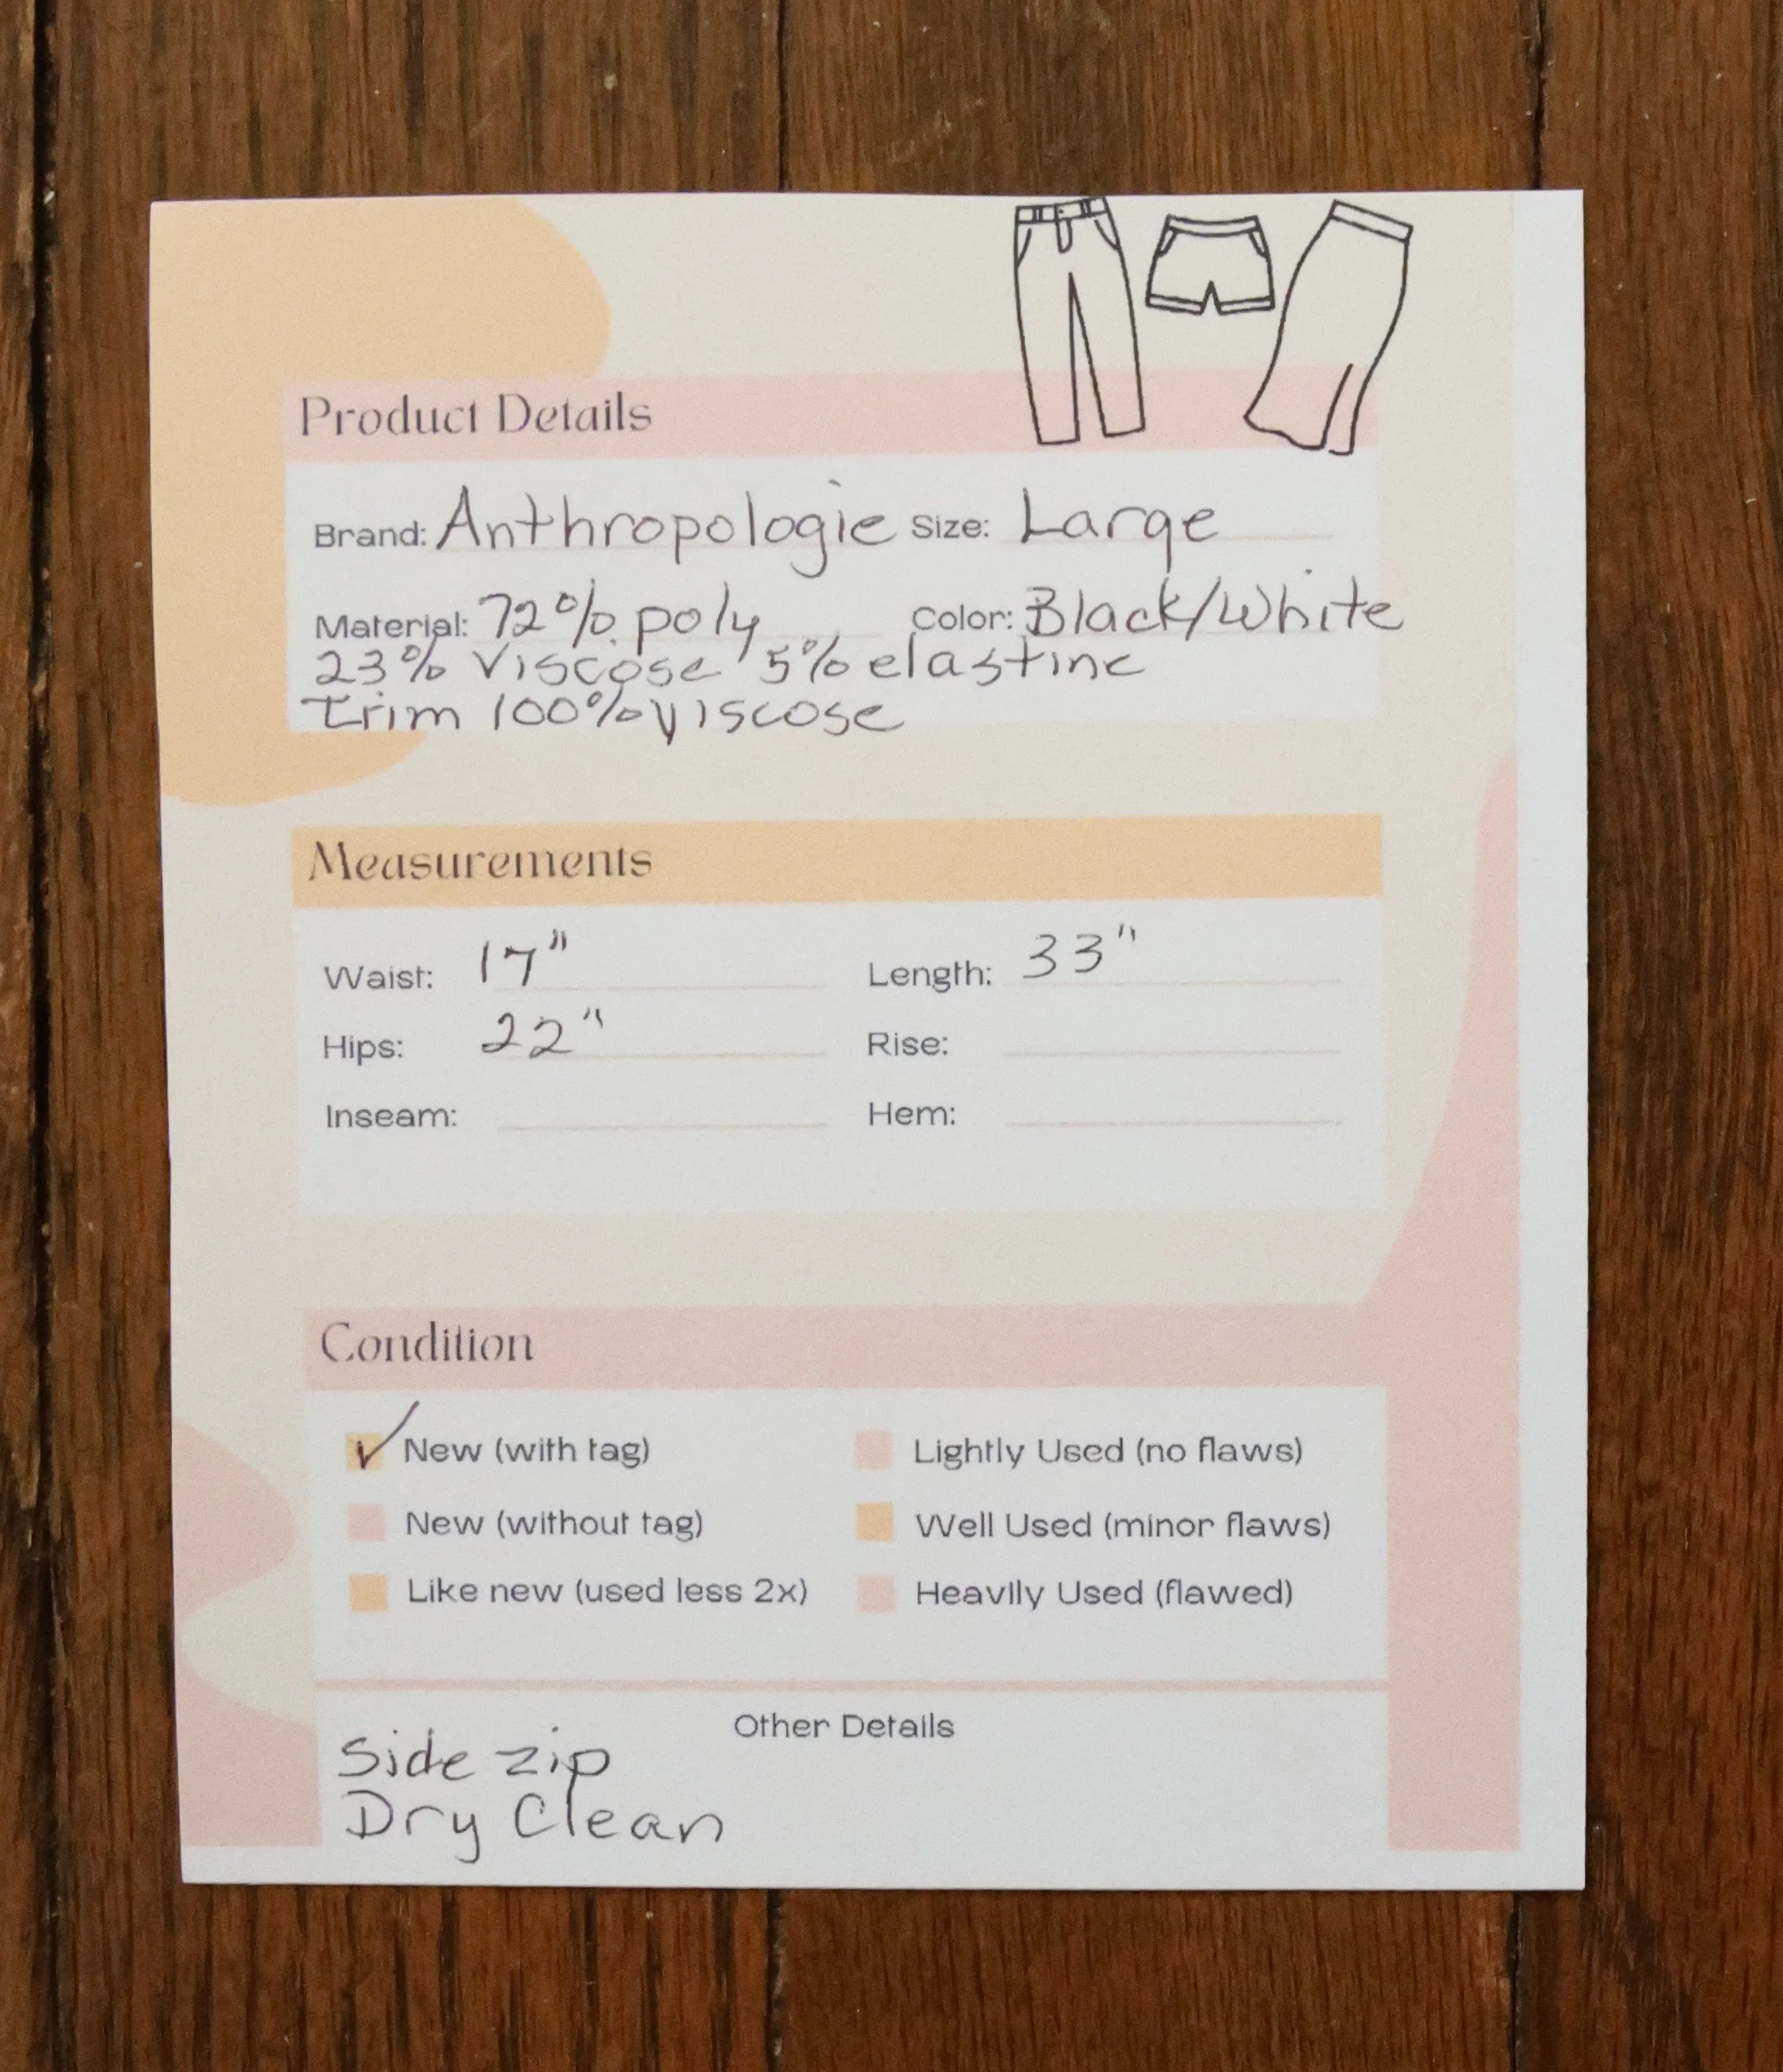 Product Details
Brand: Anthropologie Size: Large
Material: 72% poly Color: Black/White
23% Viscose 5% elastine
trim 100% viscose
Measurements
Waist: 17" Length: 33"
Hips: 22" Rise:
Inseam: Hem:
Condition
New (with tag) Lightly Used (no flaws)
New (without tag) Well Used (minor flaws)
Like new (used less 2x) Heavily Used (flawed)
Other Details
Side zip
Dry Clean